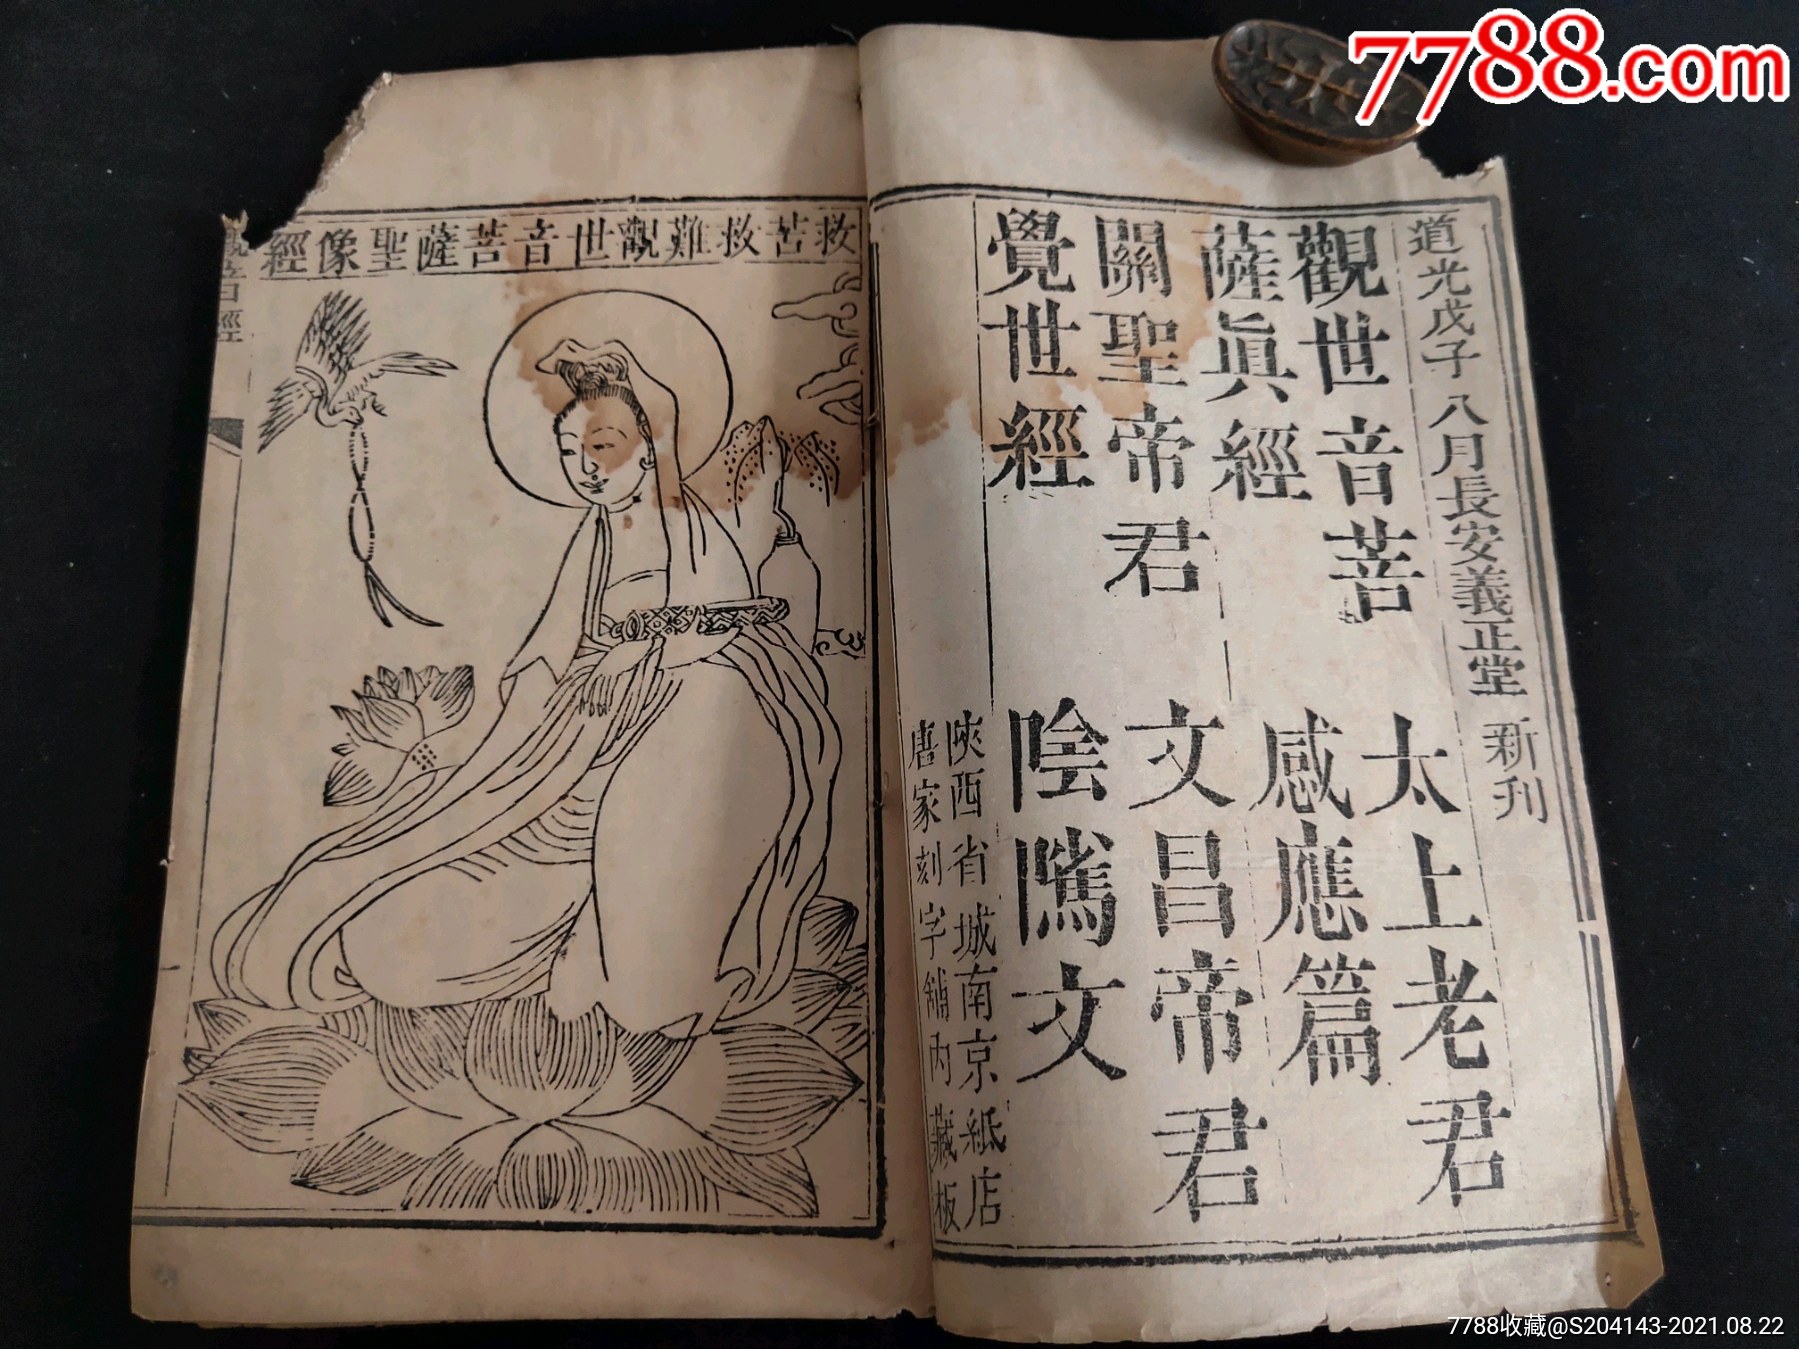 7788.com
道光戊子八月長安義正堂新刊
觀世音菩
薩眞經
太上老君
感應篇
關聖帝君
覺世經
文昌帝君
陰隲文
陝西省城南京紙店
唐家刻字舖內藏板
救苦救難觀世音菩薩聖像經
7788收藏@S204143-2021.08.22